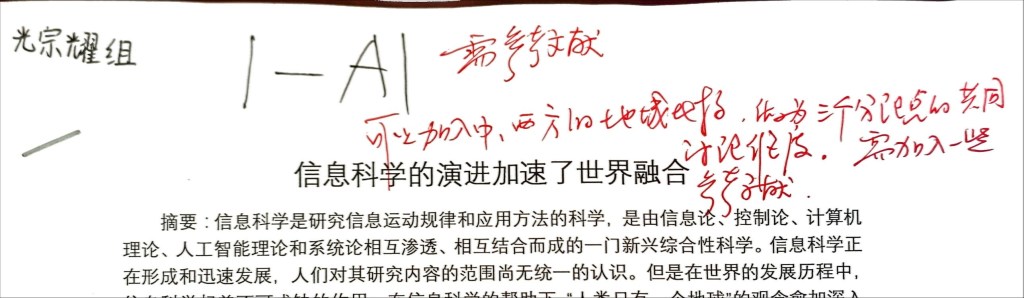 光宗耀组
1-A1
需参考文献
可以加入中、西方的地域对比,作为三个分论点的共同
讨论维度。需加入一些
参考文献.
信息科学的演进加速了世界融合
摘要:信息科学是研究信息运动规律和应用方法的科学,是由信息论、控制论、计算机
理论、人工智能理论和系统论相互渗透、相互结合而成的一门新兴综合性科学。信息科学正
在形成和迅速发展,人们对其研究内容的范围尚无统一的认识。但是在世界的发展历程中,